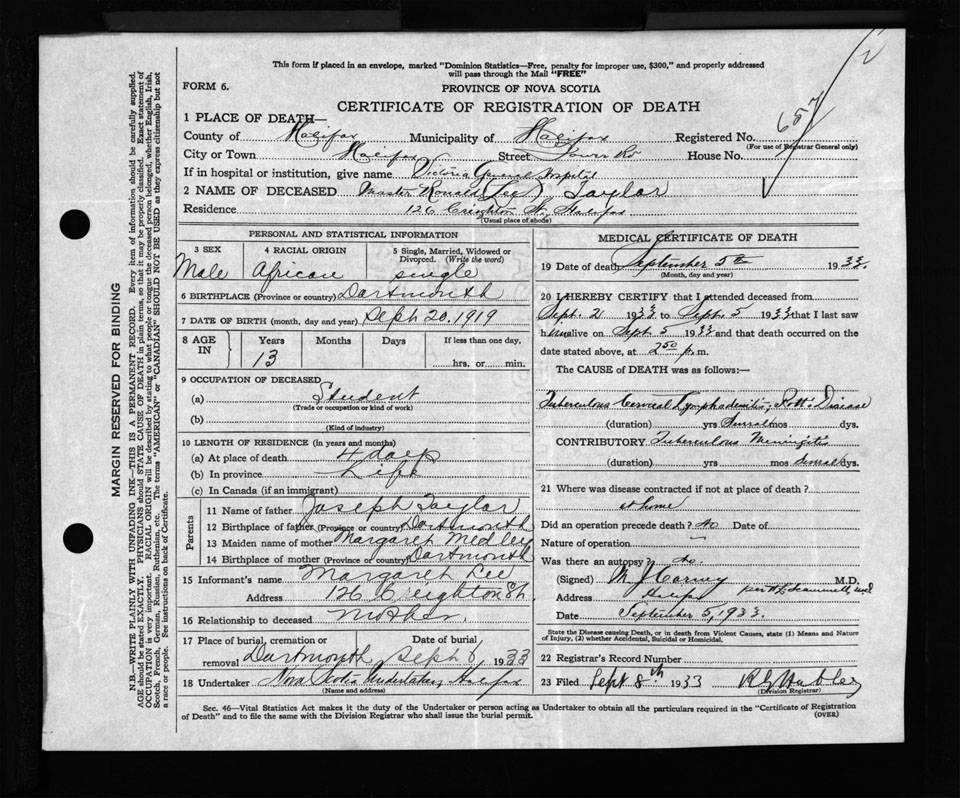 This form if placed in an envelope, marked "Dominion Statistics—Free, penalty for improper use, $300," and properly addressed
will pass through the Mail "FREE"
FORM 6.
PROVINCE OF NOVA SCOTIA
CERTIFICATE OF REGISTRATION OF DEATH
1 PLACE OF DEATH—
County of Halifax Municipality of Halifax Registered No. 657
(For use of Registrar General only)
City or Town Halifax Street Tower Rd House No.
If in hospital or institution, give name Victoria General Hospital
2 NAME OF DECEASED Master Ronald (Lee) Taylor
Residence 126 Creighton St. Halifax
(Usual place of abode)
PERSONAL AND STATISTICAL INFORMATION
3 SEX 4 RACIAL ORIGIN 5 Single, Married, Widowed or
Divorced. (Write the word)
Male African single
6 BIRTHPLACE (Province or country) Dartmouth
7 DATE OF BIRTH (month, day and year) Sept 20, 1919
8 AGE IN Years Months Days If less than one day,
13 hrs. or min.
9 OCCUPATION OF DECEASED
(a) Student
(Trade or occupation or kind of work)
(b)
(Kind of industry)
10 LENGTH OF RESIDENCE (in years and months)
(a) At place of death 4 days
(b) In province Life
(c) In Canada (if an immigrant)
Parents
11 Name of father Joseph Taylor
12 Birthplace of father (Province or country) Dartmouth
13 Maiden name of mother Margaret Medley
14 Birthplace of mother (Province or country) Dartmouth
15 Informant's name Margaret Lee
Address 126 Creighton St.
16 Relationship to deceased mother.
17 Place of burial, cremation or Date of burial
removal Dartmouth Sept 8, 1933
18 Undertaker Nova Scotia Undertaking, Halifax
(Name and address)
MEDICAL CERTIFICATE OF DEATH
19 Date of death September 5th 1933.
(Month, day and year)
20 I HEREBY CERTIFY that I attended deceased from
Sept. 2 1933 to Sept. 5 1933 that I last saw
him alive on Sept. 5 1933 and that death occurred on the
date stated above, at 2.50 p.m.
The CAUSE of DEATH was as follows:—
Tuberculous Cervical Lymphadenitis; Pott's Disease
(duration) yrs Several mos. dys.
CONTRIBUTORY Tuberculous Meningitis
(duration) yrs mos Several dys.
21 Where was disease contracted if not at place of death?
at home
Did an operation precede death? No Date of
Nature of operation —
Was there an autopsy? No.
(Signed) M.D.
Address Halifax
Date September 5, 1933.
State the Disease causing Death, or in death from Violent Causes, state (1) Means and Nature
of Injury, (2) whether Accidental, Suicidal or Homicidal.
22 Registrar's Record Number
23 Filed Sept 8th 1933
(Division Registrar)
Sec. 46—Vital Statistics Act makes it the duty of the Undertaker or person acting as Undertaker to obtain all the particulars required in the "Certificate of Registration
of Death" and to file the same with the Division Registrar who shall issue the burial permit.
(OVER)
MARGIN RESERVED FOR BINDING
N.B.—WRITE PLAINLY WITH UNFADING INK—THIS IS A PERMANENT RECORD. Every item of information should be carefully supplied.
AGE should be stated EXACTLY. PHYSICIANS should STATE CAUSE OF DEATH in plain terms, so that it may be properly classified. Exact statement of
OCCUPATION is very important. RACIAL ORIGIN will be described by stating to what people or tongue the deceased person belonged, whether English, Irish,
Scotch, French, German, Russian, Ruthenian, etc. The terms "AMERICAN" or "CANADIAN" SHOULD NOT BE USED as they express citizenship but not
a race or people. See instructions on back of Certificate.